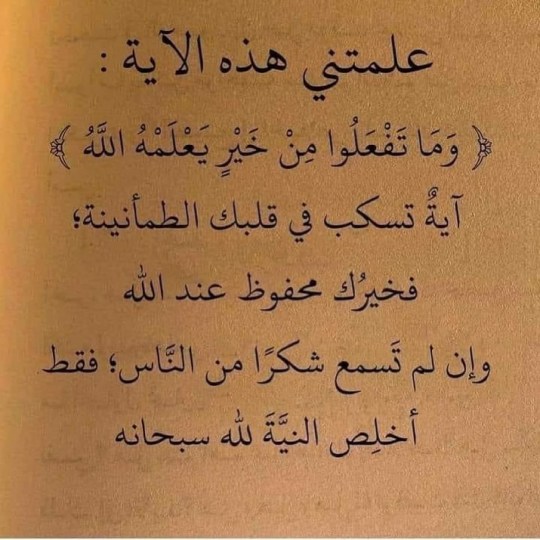 علمتني هذه الآية :
﴿ وَمَا تَفْعَلُوا مِنْ خَيْرٍ يَعْلَمْهُ اللَّهُ ﴾
آيةٌ تسكب في قلبك الطمأنينة؛
فخيرُك محفوظ عند الله
وإن لم تَسمع شكرًا من النَّاس؛ فقط
أخلِص النيَّةَ لله سبحانه